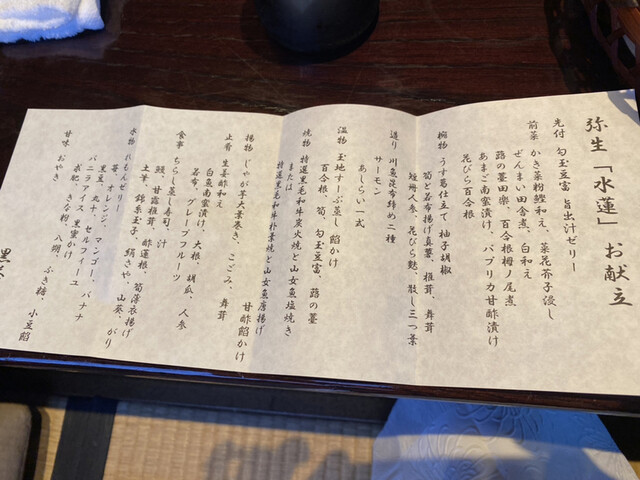 弥生「水蓮」 お献立
先付 勾玉豆富 旨出汁ゼリー
前菜 かき菜粉鰹和え、菜花芥子浸し
ぜんまい田舎煮、白和え
蕗の薹田楽、百合根栂ノ尾煮
あまご南蛮漬け、パプリカ甘酢漬け
花びら百合根
椀物 うす葛仕立て 柚子胡椒
筍と若布揚げ真薯、椎茸、舞茸
短冊人参、花びら麩、散し三つ葉
造り 川魚昆布締め二種
サーモン
あしらい一式
温物 玉地すーぷ蒸し 餡かけ
百合根、筍、勾玉豆富、蕗の薹
焼物 特選黒毛和牛炭火焼と山女魚塩焼き
または
特選黒毛和牛朴葉焼と山女魚唐揚げ
揚物 じゃが芋大葉巻き、こごみ、舞茸
甘酢餡かけ
止肴 生姜酢和え
白魚南蛮漬け、大根、胡瓜、人参
若布、グレープフルーツ
食事 ちらし蒸し寿司、汁
鰻、甘露椎茸、酢蓮根、筍薄衣揚げ
土筆、錦糸玉子、絹さや、山葵、がり
水物 れもんゼリー
苺、オレンジ、マンゴー、バナナ
黒豆、丸十、セルフィーユ
バニラアイス 黒蜜かけ
求肥、きな粉、八朔、ふき糖、小豆餡
甘味 おやき